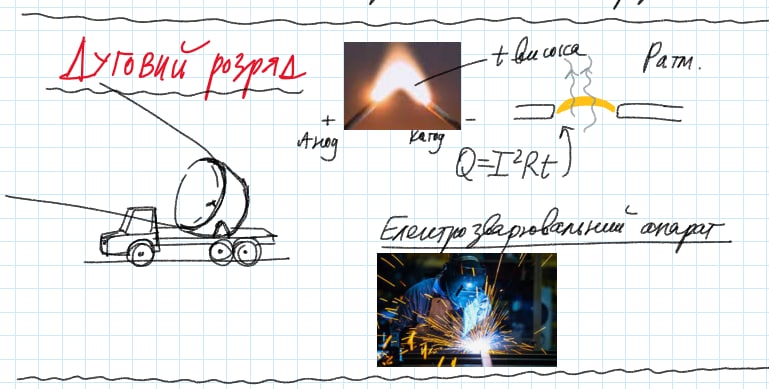 Дуговий розряд
t висока
Pатм.
+
Анод
Катод
-
Q=I²Rt
Електрозварювальний апарат